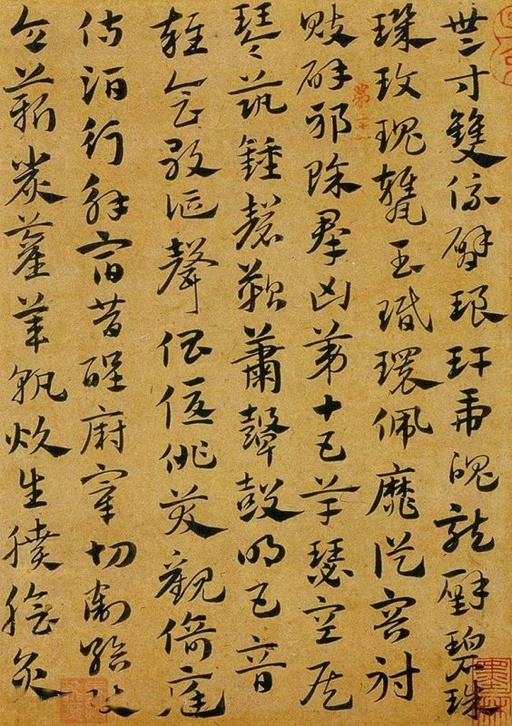 寸雙係臂琅玕虎魄龍璧碧珠
璣玫瑰甕玉玦環佩靡從容射
鬾辟邪除群凶第十五竽瑟空侯
琴筑鍾磬鞀簫鼙鼓鳴五音
雜會歌謳聲倡優俳笑觀倚庭
侍酒行觴宿昔酲廚宰切割給使
令薪炭雚葦孰炊生膹膾炙